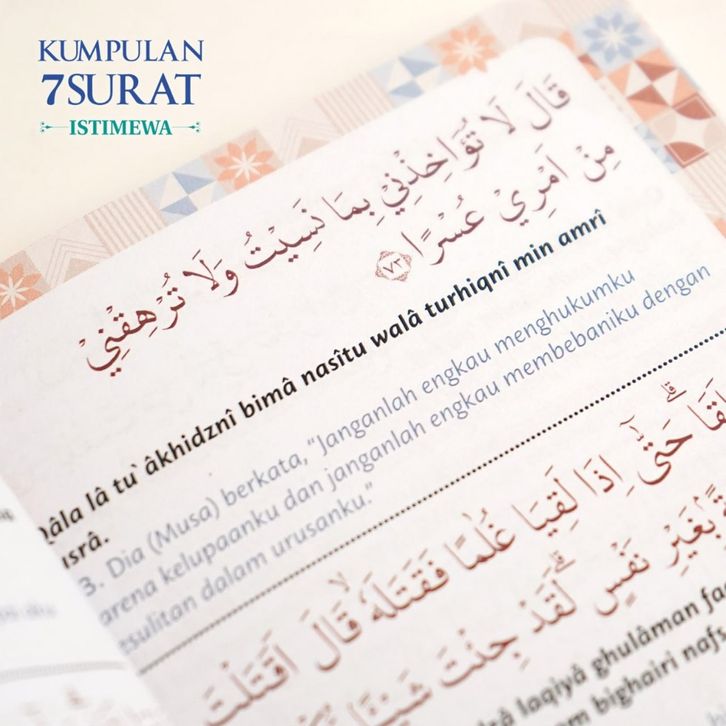 KUMPULAN
7SURAT
ISTIMEWA
قَالَ لَا تُؤَاخِذْنِيْ بِمَا نَسِيْتُ وَلَا تُرْهِقْنِيْ
مِنْ اَمْرِيْ عُسْرًا ٧٣
lâ tu`âkhidznî bimâ nasîtu walâ turhiqnî min amrî
3. Dia (Musa) berkata, “Janganlah engkau menghukumku
kelupaanku dan janganlah engkau membebaniku dengan
dalam urusanku.”
حَتّٰىٓ اِذَا لَقِيَا غُلٰمًا فَقَتَلَهٗۙ قَالَ اَقَتَلْتَ
بِغَيْرِ نَفْسٍۗ لَقَدْ جِئْتَ
laqiyâ ghulâman
bighairi